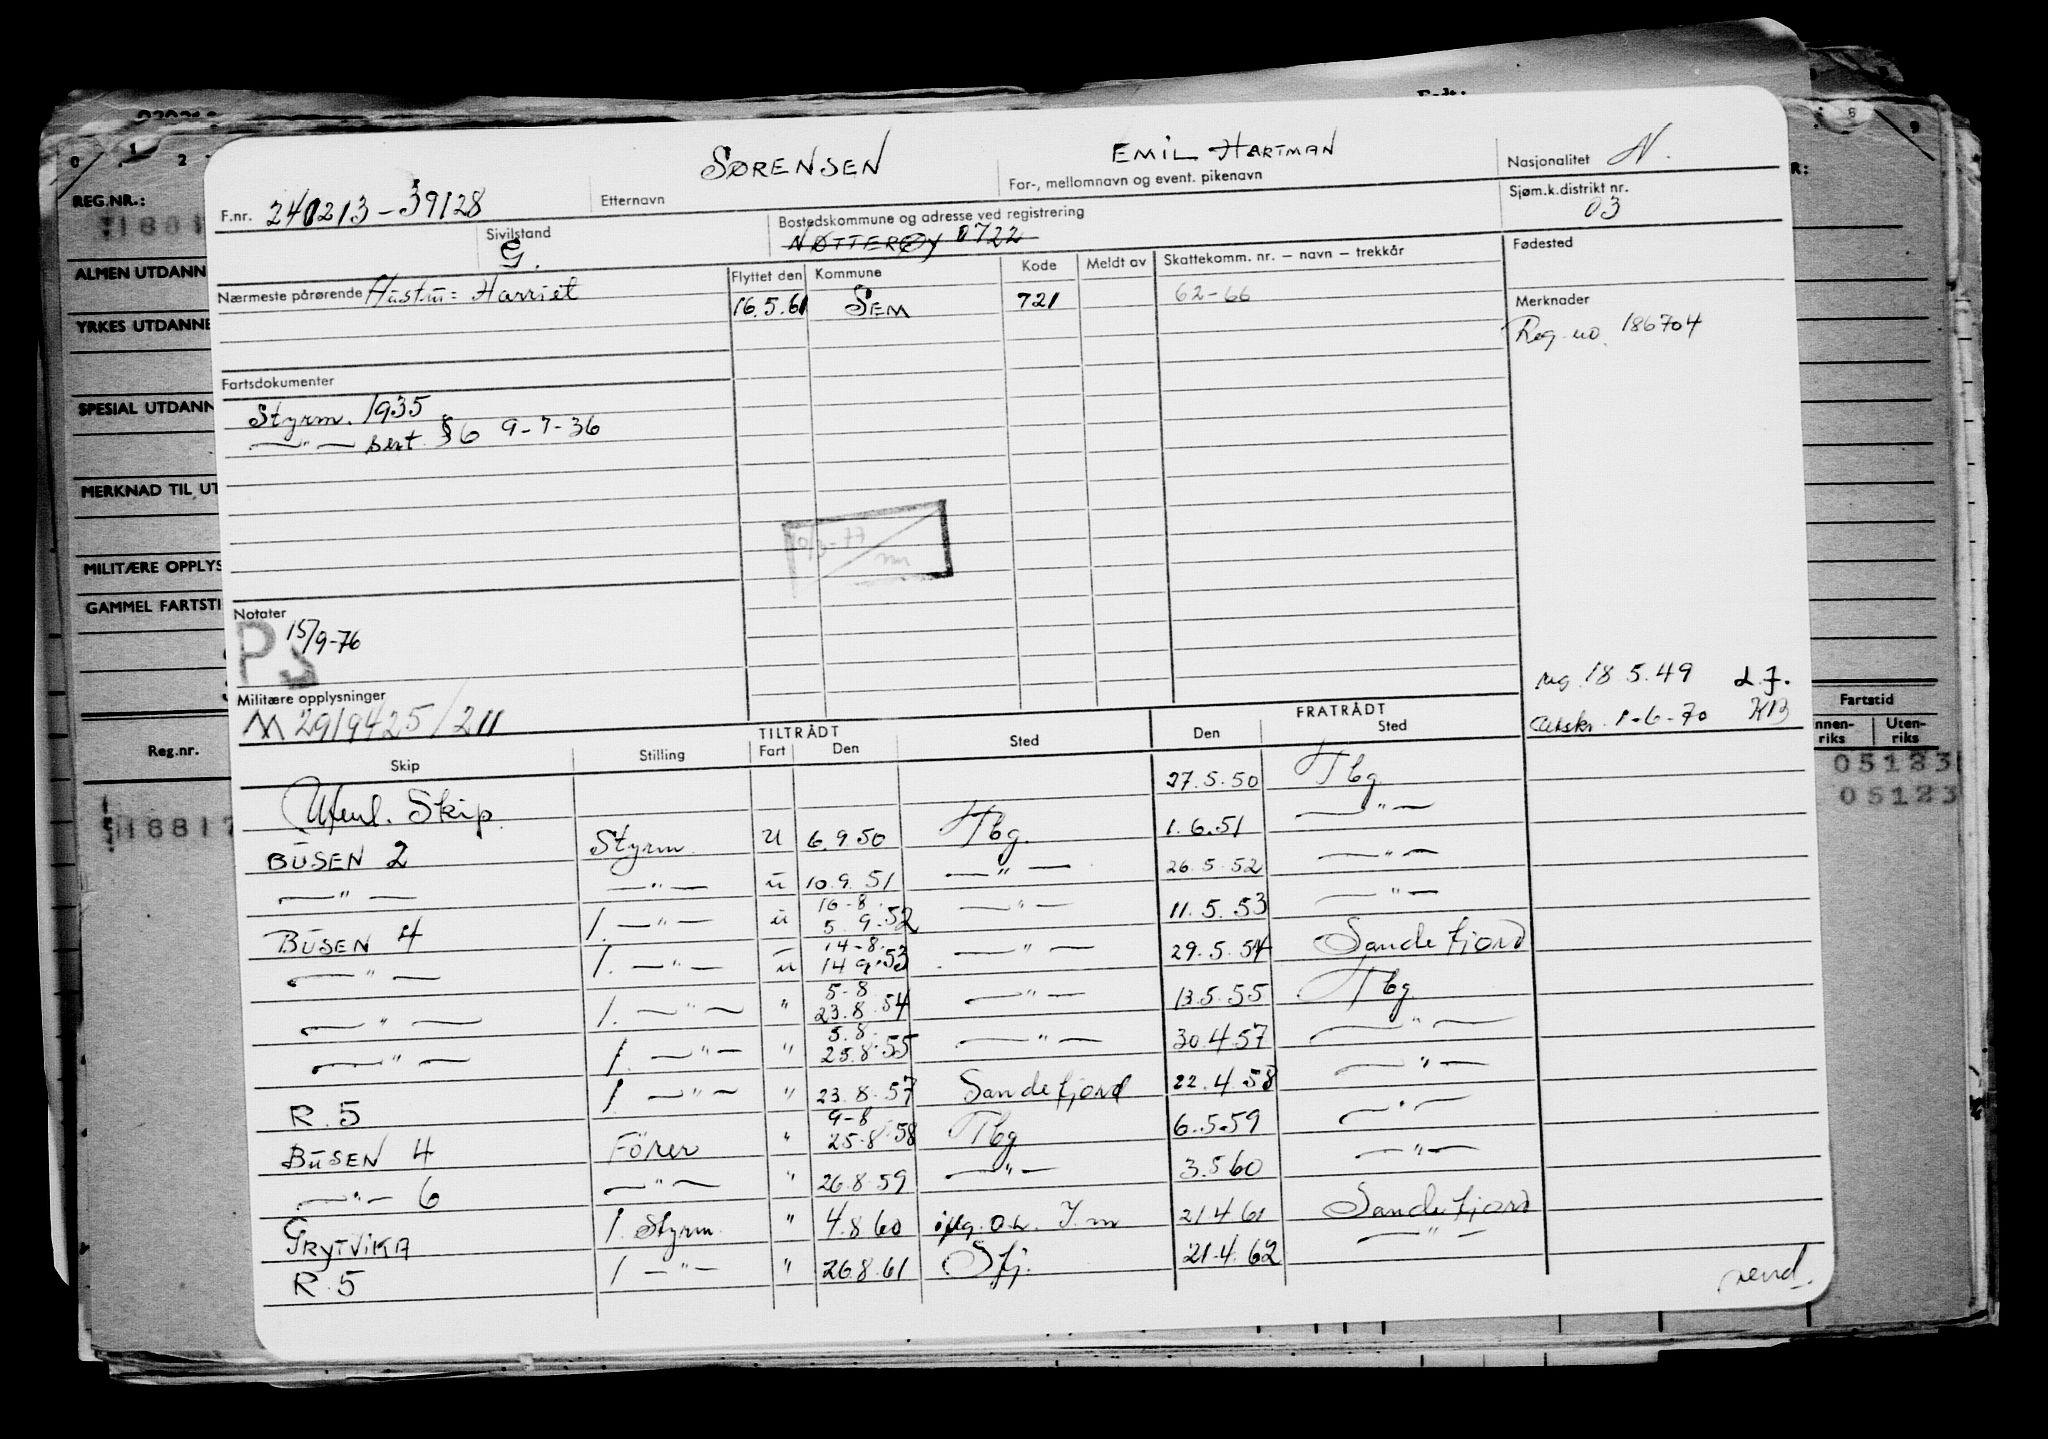 REG.NR.:
ALMEN UTDANN
YRKES UTDANNE
SPESIAL UTDANN
MERKNAD TIL UT
MILITÆRE OPPLYS
GAMMEL FARTSTI
Reg.nr.
Fartstid
Uten-
riks
05123
05123
SØRENSEN EMIL HARTMAN Nasjonalitet N.
F.nr. 240213-39128 Etternavn For-, mellomnavn og event. pikenavn Sjøm.k.distrikt nr.
03
Sivilstand Bostedskommune og adresse ved registrering
G. NØTTERØY 0722
Fødested
Nærmeste pårørende Hustru: Harriet Flyttet den Kommune Kode Meldt av Skattekomm. nr. – navn – trekkår
16.5.61 SEM 721 62-66
Merknader
Reg. no. 186704
Fartsdokumenter
Styrm. 1935
—"— sert. §6 9-7-36
Notater
PS 15/9-76
Militære opplysninger
M 2919425/211
reg. 18.5.49 L.J.
Avskr. 1-6-70 KB
TILTRÅDT FRATRÅDT
Skip Stilling Fart Den Sted Den Sted
Utenl. Skip 27.5.50 Tbg
BUSEN 2 Styrm. U 6.9.50 Tbg. 1.6.51 —"—
—"— —"— u 10.9.51 —"— 26.5.52 —"—
16-8.
BUSEN 4 1. —"— u 5.9.52 —"— 11.5.53 —"—
14-8.
—"— 1. —"— u 14.9.53 —"— 29.5.54 Sandefjord
5-8
—"— 1. —"— " 23.8.54 —"— 13.5.55 Tbg.
5.8.
—"— 1. —"— " 25.8.55 —"— 30.4.57 —"—
R. 5 1. —"— " 23.8.57 Sandefjord 22.4.58 —"—
9-8
BUSEN 4 Fører " 25.8.58 Tbg 6.5.59 —"—
—"— 6 —"— " 26.8.59 —"— 3.5.60 —"—
GRYTVIKA 1. Styrm. " 4.8.60 21.4.61 Sandefjord
R. 5 1 —"— " 26.8.61 Sfj. 21.4.62 —"—
vend.